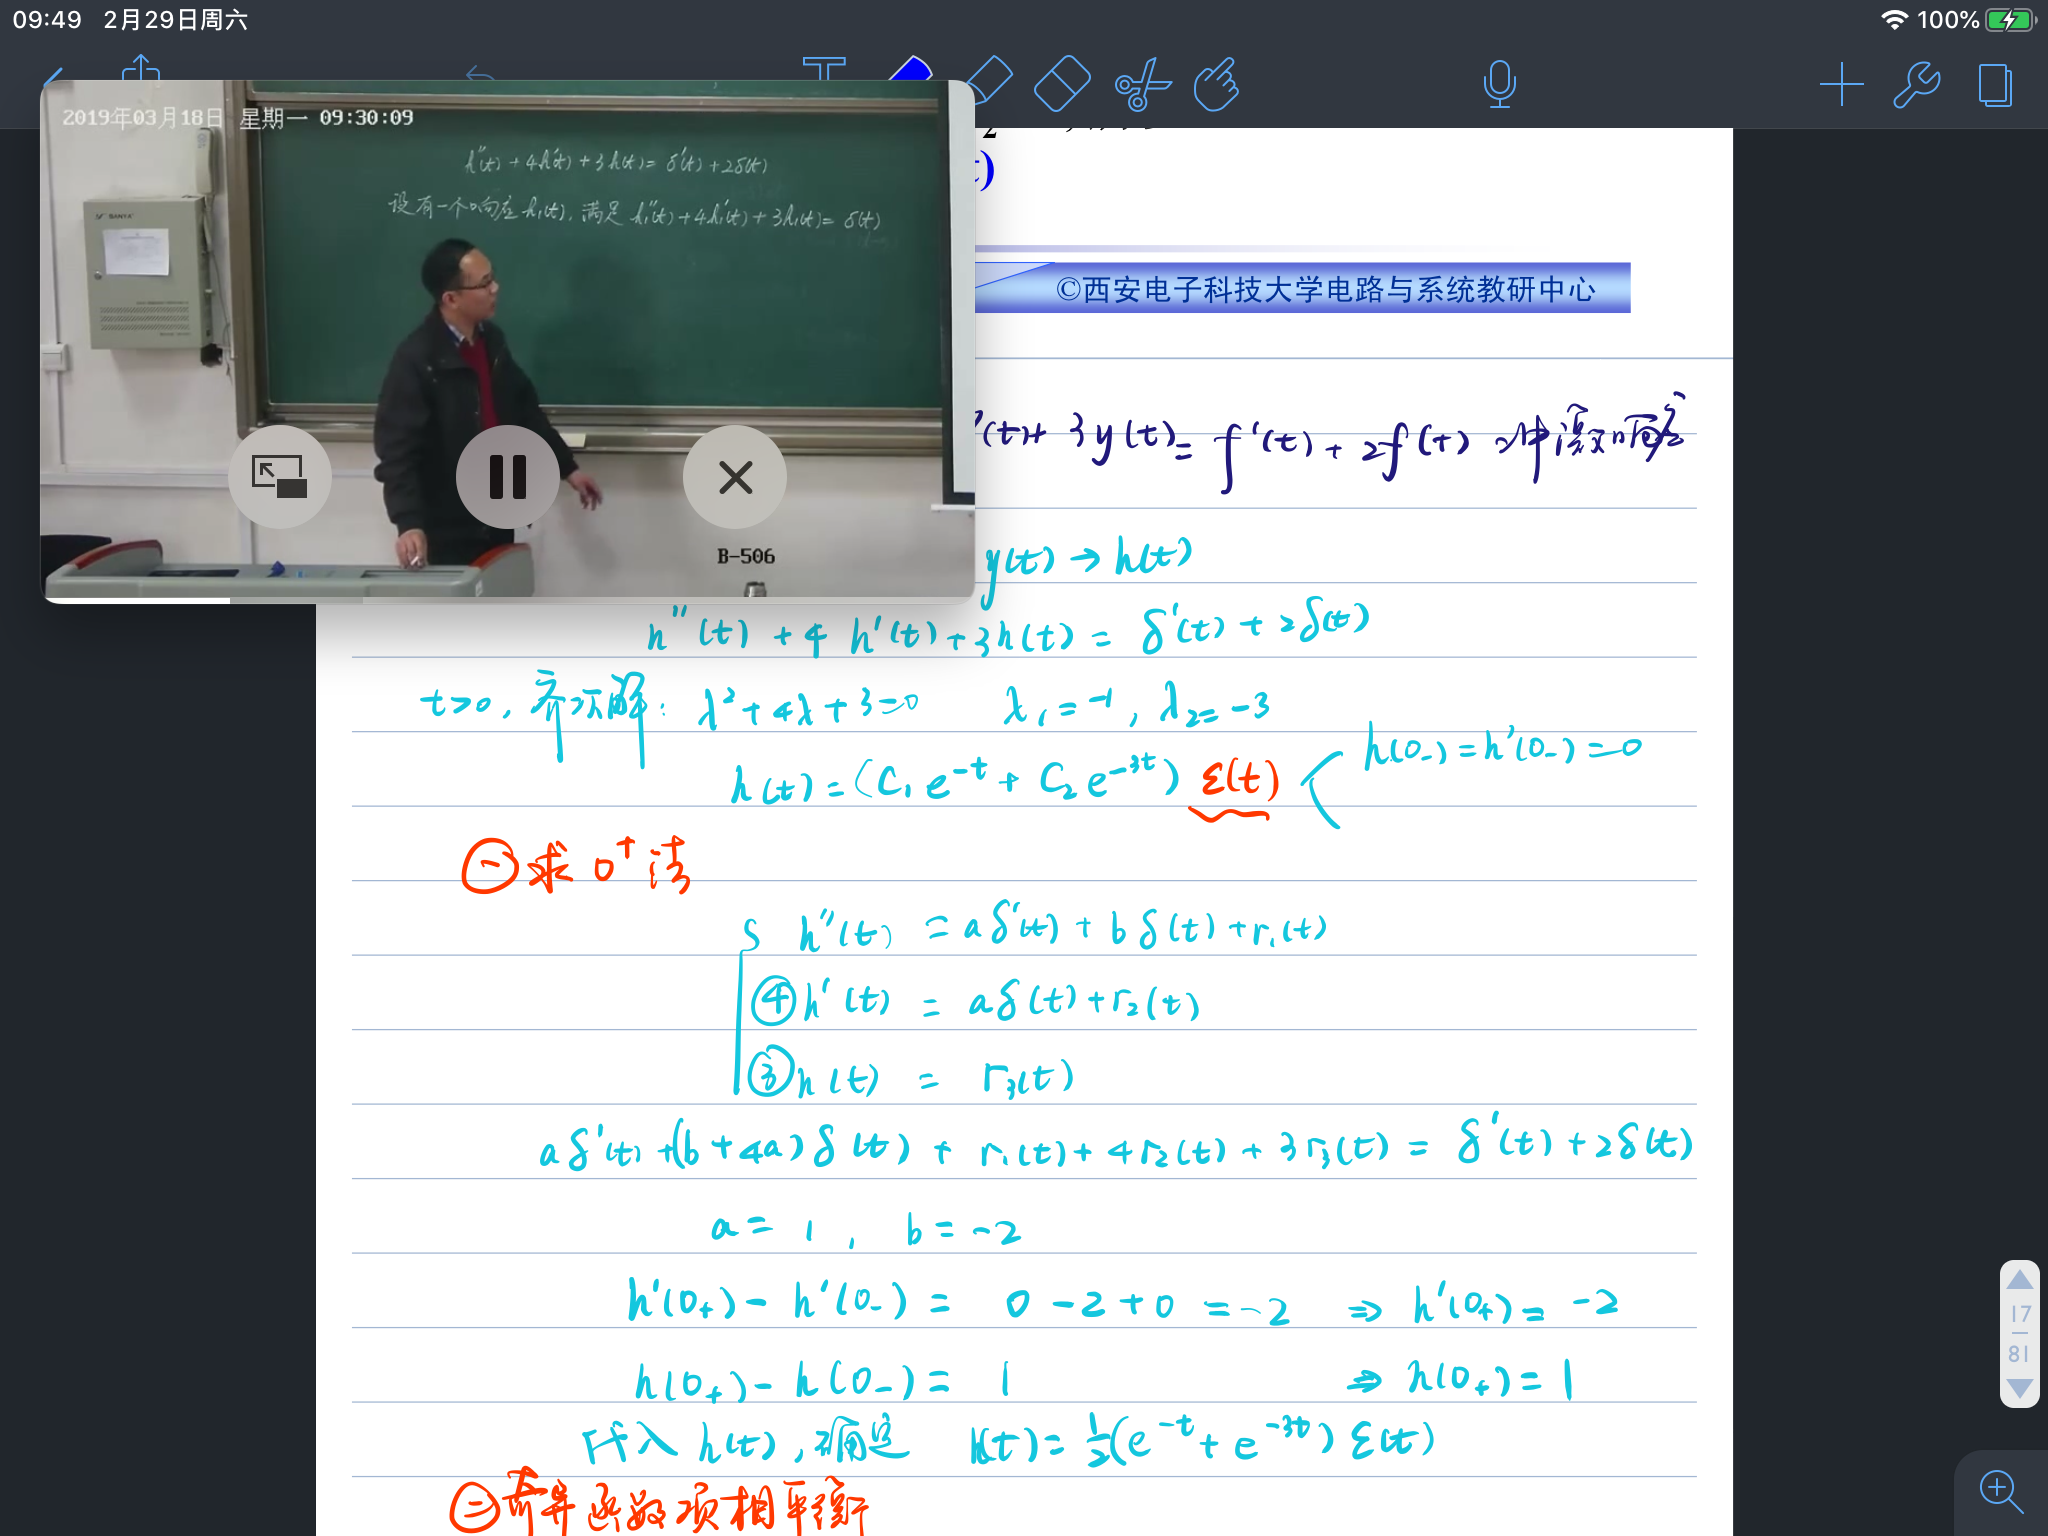 09:49 2月29日周六
100%
2019年03月18日 星期一 09:30:09
h''(t) + 4h'(t) + 3h(t) = δ'(t) + 2δ(t)
设有一个响应h₁(t), 满足 h₁''(t) + 4h₁'(t) + 3h₁(t) = δ(t)
BANYA
B-506
t)
©西安电子科技大学电路与系统教研中心
'(t)+ 3y(t) = f'(t) + 2f(t) 冲激响应
y(t) → h(t)
h''(t) + 4 h'(t) + 3h(t) = δ'(t) + 2δ(t)
t>0, 齐次解: λ² + 4λ + 3 = 0 λ₁ = -1, λ₂ = -3
h(t) = (C₁e^{-t} + C₂e^{-3t}) ε(t) h(0_-) = h'(0_-) = 0
㊀求 0⁺法
h''(t) = aδ'(t) + bδ(t) + r₁(t)
④h'(t) = aδ(t) + r₂(t)
③h(t) = r₃(t)
aδ'(t) + (b+4a)δ(t) + r₁(t) + 4r₂(t) + 3r₃(t) = δ'(t) + 2δ(t)
a = 1, b = -2
h'(0₊) - h'(0_-) = 0 - 2 + 0 = -2 ⇒ h'(0₊) = -2
h(0₊) - h(0_-) = 1 ⇒ h(0₊) = 1
代入 h(t), 确定 h(t) = ½(e^{-t} + e^{-3t}) ε(t)
㊁奇异函数项相平衡
17
81